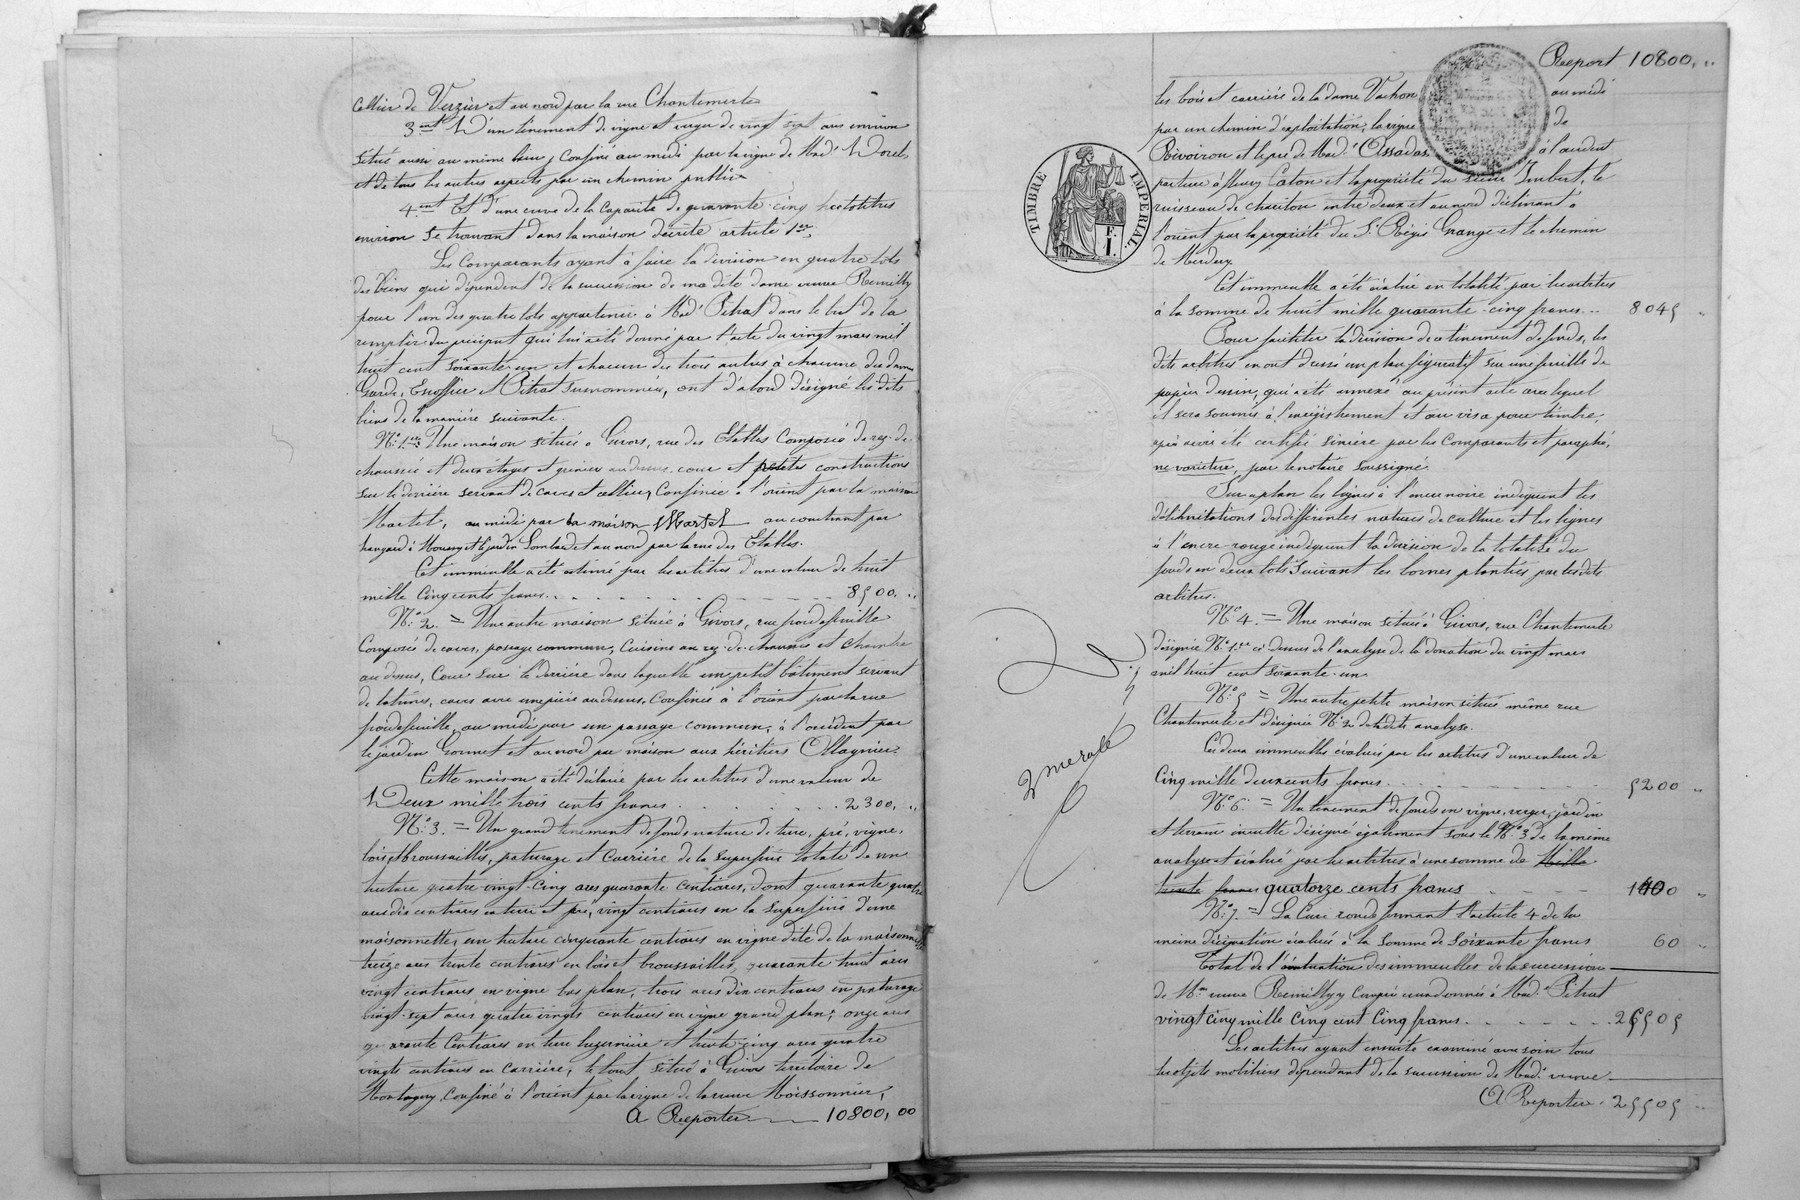 cellier de Verzier et au nord par la rue Chantemerle
3ent D'un tènement de vigne et verger de vingt sept ares environ
situé aussi au même lieu, confiné au midi par la vigne de Made Dorel
et de tous les autres aspects par un chemin public
4ent Et d'une cuve de la capacité de quarante-cinq hectolitres
environ se trouvant dans la maison décrite article 1er.
Les comparants ayant à faire la division en quatre lots
des biens qui dépendent de la succession de ma dite dame veuve Remilly
pour l'un des quatre lots appartenir à Made Pitrat dans le but de la
remplir du préciput qui lui a été donné par l'acte du vingt mars mil
huit cent soixante un et chacun des trois autres à chacune des dames
Garde, et Pitrat surnommées, ont d'abord désigné les dits
biens de la manière suivante.
No 1er Une maison située à Givors, rue des Etables composée de rez-de-
chaussée et deux étages et grenier au dessus, cour et petites constructions
sur le derrière servant de caves et cellier, confinée à l'orient par la maison
Martel, au midi par la maison Martel au couchant par
hangard à Moussy et jardin Lombard et au nord par la rue des Etables.
Cet immeuble a été estimé par les arbitres d'une valeur de huit
mille cinq cents francs. . . . . . . . 8500. "
No 2. = Une autre maison située à Givors, rue froidefeuille
composée de caves, passage commun, cuisine au rez-de-chaussée et chambre
au dessus, cour sur le derrière dans laquelle un petit bâtiment servant
de latrines, caves avec une pièce au dessus, confinée à l'orient par la rue
froidefeuille, au midi par un passage commun, à l'occident par
le jardin Gonnet et au nord par maison aux héritiers Ollagnier.
Cette maison a été déclarée par les arbitres d'une valeur de
Deux mille trois cents francs . . . . . . . 2300. "
No 3. = Un grand tènement de fonds nature de terre, pré, vigne,
bois, broussailles, paturage et carrière de la superficie totale de un
hectare quatre-vingt-cinq ares quarante centiares, dont quarante quatre
ares dix centiares en terre et pré, vingt centiares en la superficie d'une
maisonnette, un hectare cinquante centiares en vigne dite de la maisonnette
treize ares trente centiares en bois et broussailles, quarante huit ares
vingt centiares en vigne bas plan, trois ares dix centiares en paturage
vingt-sept ares quatre vingts centiares en vigne grand plan, onze ares
quarante centiares en terre luzernière et trente-cinq ares quatre
vingts centiares en carrière; le tout situé à Givors territoire de
Montagny, confiné à l'orient par la vigne de la veuve Moissonnier,
A Reporter 10800,00
Report 10800, "
les bois et carrière de la dame Vachon au midi
par un chemin d'exploitation, la vigne de
Rivoiron et le pré de Made Assadas, à l'occident
par terre à fleury Caton et la propriété du sieur Imbert, le
ruisseau de chariton entre deux et au nord déclinant à
l'orient par la propriété du Sr Régis Grange et le chemin
de Merdary.
TIMBRE IMPERIAL.
F. 1.
Cet immeuble a été évalué en totalité par les arbitres
à la somme de huit mille quarante-cinq francs... 8045 "
Pour faciliter la division de ce tènement de fonds, les
dits arbitres en ont dressé un plan figuratif sur une feuille de
papier dessin, qui a été annexé au présent acte avec lequel
il sera soumis à l'enregistrement et au visa pour timbre,
après avoir été certifié sincère par les comparants et paraphé,
ne varietur, par le notaire soussigné.
Sur ce plan les lignes à l'encre noire indiquent les
délimitations des différentes natures de culture et les lignes
à l'encre rouge indiquent la division de la totalité du
fonds en deux lots suivant les bornes plantées par les dits
arbitres.
No 4. = Une maison située à Givors, rue Chantemerle
désignée No 1er ci-dessus de l'analyse de la donation du vingt mars
mil huit cent soixante-un
No 5 = Une autre petite maison située même rue
Chantemerle et désignée No 2 de ladite analyse.
Ces deux immeubles évalués par les arbitres d'une valeur de
cinq mille deux cents francs . . . . . . 5200 "
No 6. = Un tènement de fonds en vigne, verger, jardin
et terrain inculte désigné également sous le No 3 de la même
analyse et évalué par les arbitres à une somme de Mille
trente francs quatorze cents francs . . . . 1400 "
No 7. = La cuve ronde formant l'article 4 de la
même désignation évaluée à la somme de soixante francs 60 "
Total de l'évaluation des immeubles de la succession
de Me veuve Remilly y compris ceux donnés à Made Pitrat
vingt cinq mille cinq cent cinq francs. . . . . . 25505
Les arbitres ayant ensuite examiné avec soin tous
les objets mobiliers dépendant de la succession de Made veuve
A Reporter. 25505